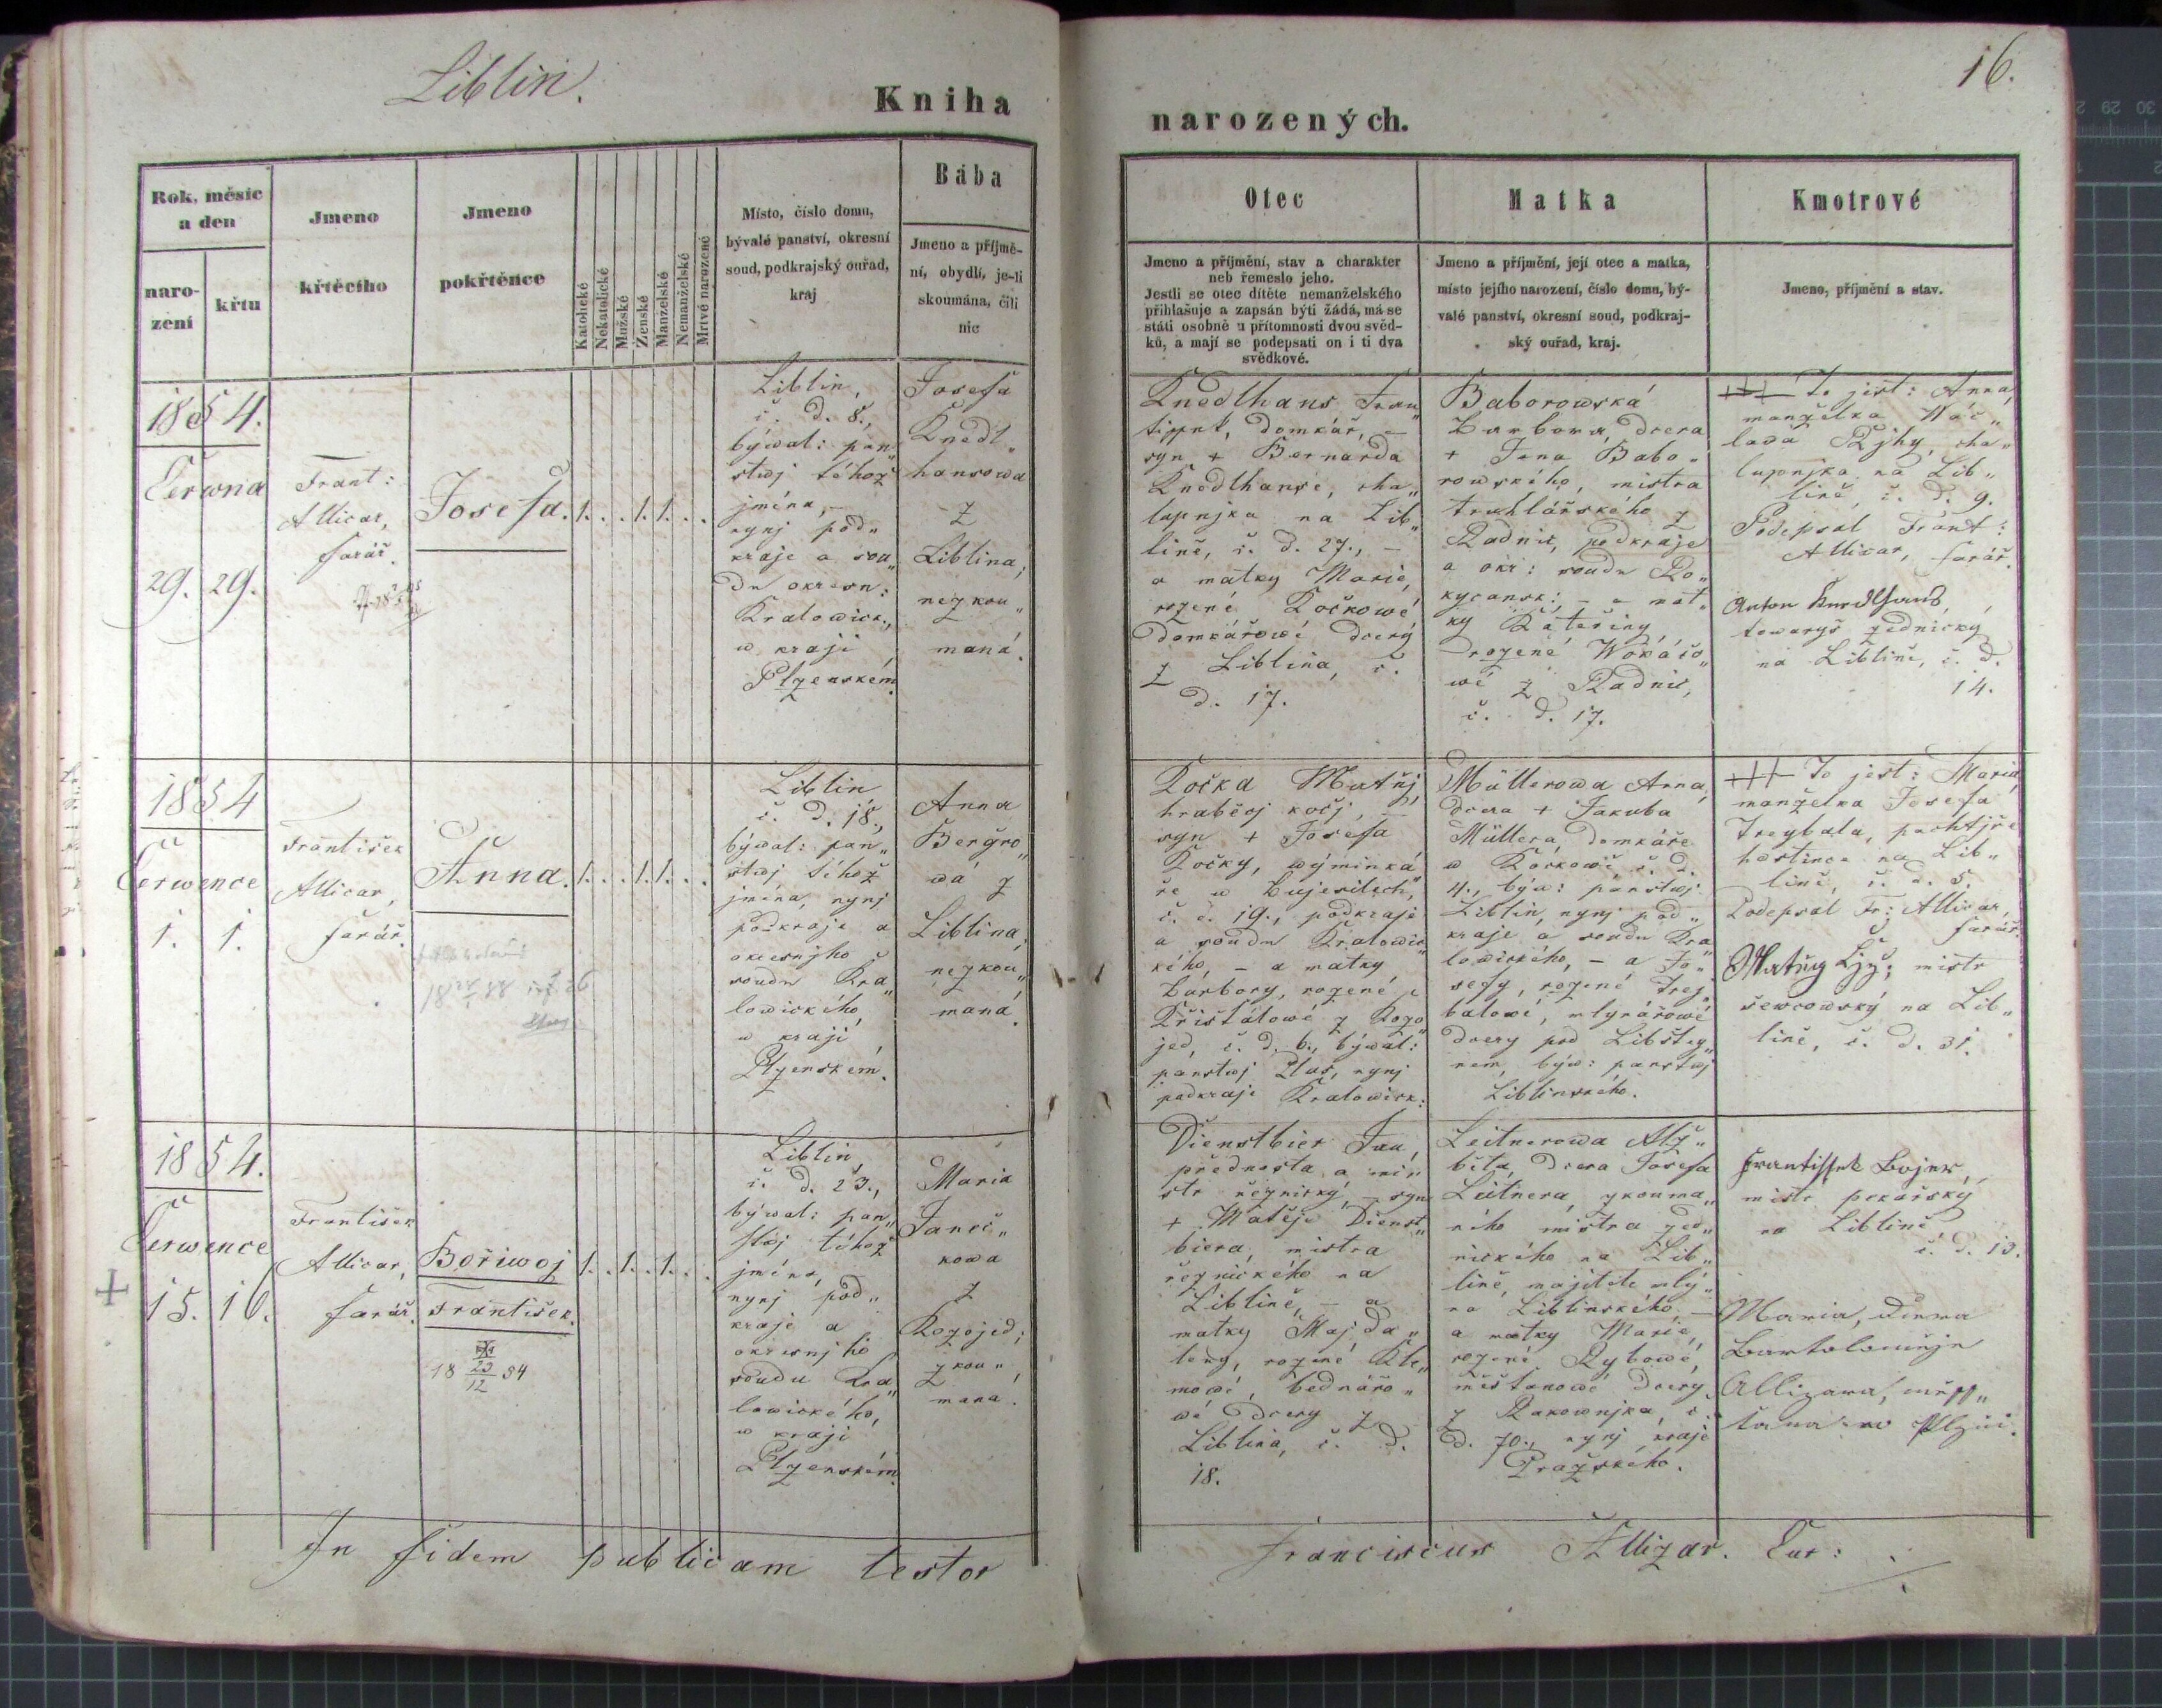 Liblin.
16.
Kniha
narozených.
Rok, měsíc
a den
naro-
zení
křtu
Jmeno
křtěcího
Jmeno
pokřtěnce
Katolické
Nekatolické
Mužské
Ženské
Manželské
Nemanželské
Mrtvě narozené
Místo, číslo domu,
bývalé panství, okresní
soud, podkrajský ouřad,
kraj
Bába
Jmeno a příjmě-
ní, obydlí, je-li
skoumána, čili
nic
Otec
Jmeno a příjmění, stav a charakter
neb řemeslo jeho.
Jestli se otec dítěte nemanželského
přihlašuje a zapsán býti žádá, má se
státi osobně u přítomnosti dvou svěd-
ků, a mají se podepsati on i ti dva
svědkové.
Matka
Jmeno a příjmění, její otec a matka,
místo jejího narození, číslo domu, bý-
valé panství, okresní soud, podkraj-
ský ouřad, kraj.
Kmotrové
Jmeno, příjmění a stav.
1854.
Června
29. 29.
Frant:
Allicar,
farář.
Josefa.
1. . . 1. 1. . .
Liblin,
č. d. 8.,
býwal: pan„
stwj téhož
jména, –
nynj pod„
kraje a sou„
du okresn:
Kralowick.,
w kraji
Plzenském.
Josefa
Knedl„
hansowa
z
Liblina,
nezkou„
maná.
Knedlhans Fran„
tissek, domkář, –
syn + Bernarda
Knedlhanse, cha„
lupnjka na Lib„
lině, č. d. 27., –
a matky Marie,
rozené Kočkowé
domkářowé dcery
z Liblina, č.
d. 17.
Baborowská
Barbora, dcera
+ Jana Babo„
rowského, mistra
truhlářského z
Radnic, podkraje
a okr: soudu Ro„
kycansk: – a mat„
ky Kateřiny
rozené Wokáčo„
wé z Radnic,
č. d. 17.
+++ To jest: Anna,
manželka Wác„
lawa Ržjhy, cha„
lupnjka na Lib„
lině, č. d. 9.
Podepsal Frant:
Allicar, farář.
Anton Knedlhans,
towaryš zednický
na Liblině, č. d.
14.
1854
Července
1. 1.
František
Allicar,
farář.
Anna.
1. . . 1. 1. . .
Liblin
č. d. 18.,
býwal: pan„
stwj téhož
jména, nynj
podkraje a
okresnjho
soudu Kra„
lowického,
w kraji
Plzenském.
Anna
Bergro„
wá z
Liblina,
nezkou„
maná.
Kočka Matěj,
hraběcj kočj, –
syn + Josefa
Kočky, wýminká„
ře w Bujesilech,
č. d. 19., podkraje
a soudu Kralowic„
kého, – a matky
Barbory, rozené
Křištálowé z Kozo„
jed, č. d. 6., býwal:
panstwj Plas, nynj
podkraji Kralowick:
Müllerowa Anna,
dcera + Jakuba
Müllera, domkáře
w č. d.
4., býw: panstwj
Liblin, nynj pod„
kraje a soudu Kra„
lowického, – a Jo„
sefy, rozené Trej„
balowé, mlynářowé
dcery pod Libštey„
nem, býw: panstwj
Liblinského.
+++ To jest: Maria,
manželka Josefa
Treybala, pachtjře
hostince na Lib„
lině, č. d. 5.
Podepsal Fr: Allicar,
farář.
Matěg mistr
šewcowský na Lib„
lině, č. d. 31.
1854.
Července
15. 16.
František
Allicar,
farář.
Bořiwoj
František.
18 23/12 54
1. . 1. . 1. . .
Liblin
č. d. 23.,
býwal: pan„
stwj téhož
jména,
nynj pod„
kraje a
okresnjho
soudu Kra„
lowického,
w kraji
Plzenském.
Maria
Janči„
kowa
z
Kozojed;
zkou„
mana.
Dienstbier Jan,
přednosta a mi„
str řeznický, – syn
+ Matěje Dienst„
biera, mistra
řeznického na
Liblině, – a
matky Majda„
leny, rozené Kle„
mowé, bednářo„
wé dcery z
Liblina, č. d.
18.
Leitnerowa Alž„
běta, dcera Josefa
Leitnera, zkouma„
ného mistra zed„
nického na Lib„
lině, majitele mlý„
na Liblinského, –
a matky Marie,
rozené Rybowé,
měšťanowé dcery
z Rakownjka, č.
d. 70., nynj kraje
Pražského.
Frantissek Bojer,
mistr pekařský
na Liblině
č. d. 13.
Maria, dcera
Bartoloměje
Allizara, měss„
tana w Plzni.
In fidem publicam testor
Franciscus Allizar. Cur: